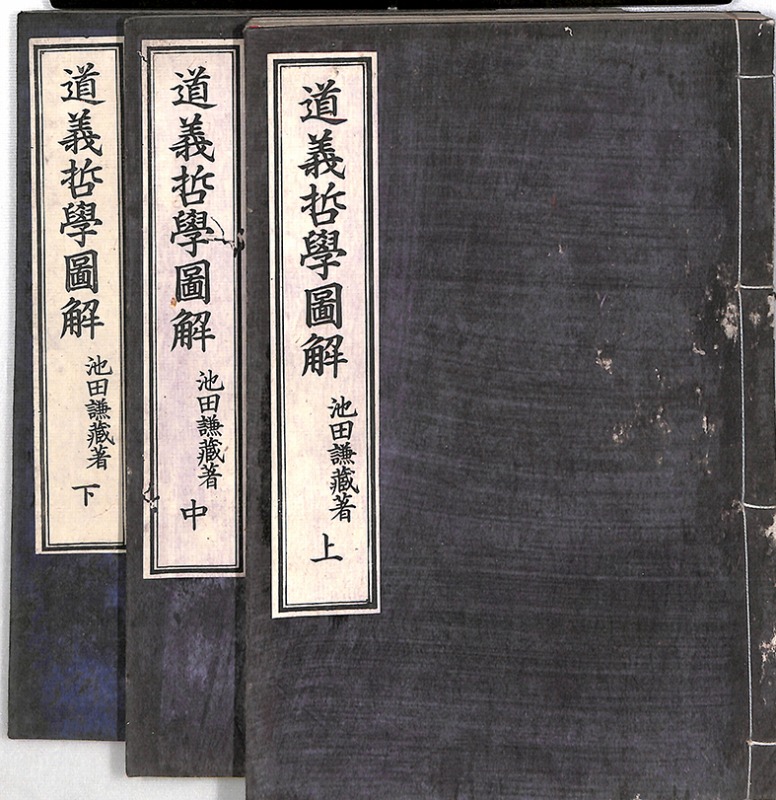 道義哲學圖解
池田謙藏著
上
道義哲學圖解
池田謙藏著
中
道義哲學圖解
池田謙藏著
下